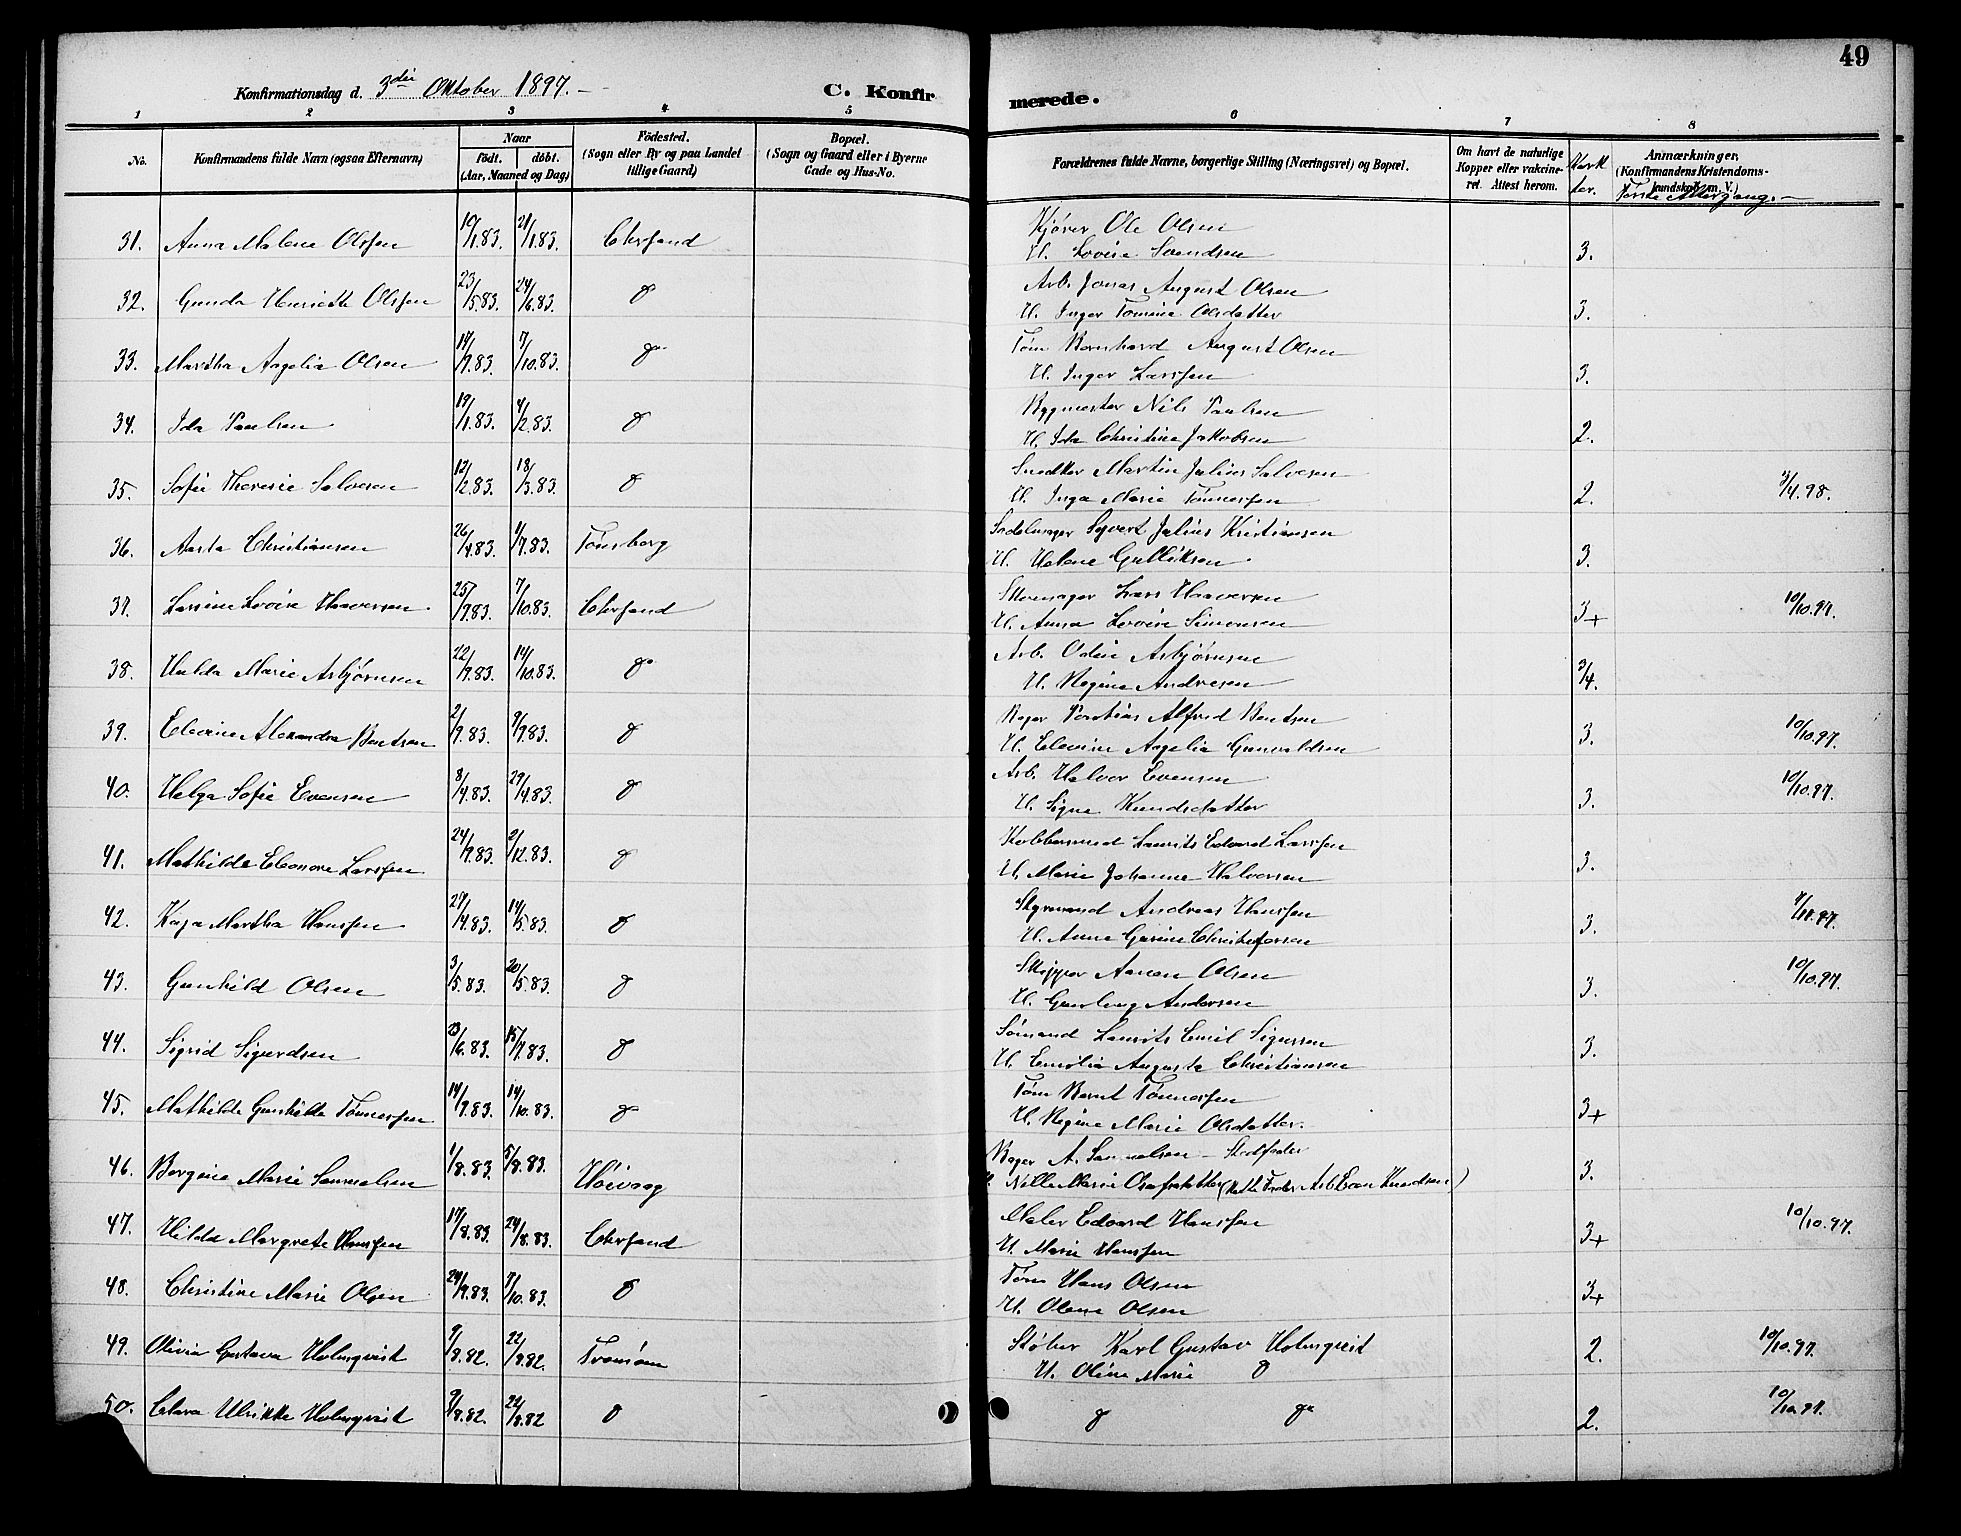 49
Konfirmationsdag d. 3die Oktober 1897. C. Konfirmerede.
1 2 3 4 5 6 7 8
No. Konfirmandens fulde Navn (ogsaa Efternavn) Naar födt. döbt. (Aar, Maaned og Dag) Födested. (Sogn eller By og paa Landet tillige Gaard) Bopæl. (Sogn og Gaard eller i Byerne Gade og Hus-No. Forældrenes fulde Navne, borgerlige Stilling (Næringsvei) og Bopæl. Om havt de naturlige Kopper eller vakcineret. Attest herom. Anmærkninger. (Konfirmandens Kristendomskundskab m. V.)
Første Altergang.
31. Anna Malene Olssen 19/1.83. 21/1.83. Chrsand Kjører Ole Olsen
H. Lovise Svendsen 3.
32. Gunda Henriette Olssen 23/5.83. 24/6.83. d Arb. Jonas August Olsen
H. Inger Tomine Olsdatter 3.
33. Martha Angelia Olsen 14/9.83. 7/10.83. do Tøm Bernhard August Olsen
H. Inger Larssen 3.
34. Ida Paulsen 19/1.83. 4/2.83. d Bygmester Nils Paulsen
H. Ida Christine Jakobsen 2.
35. Sofie Theresie Salvesen 12/2.83. 18/3.83. d Snedker Martin Julius Salvesen
H. Inga Marie Tønnessen 2. 3/4.98.
36. Aasta Christiansen 26/4.83. 1/7.83. Tønsberg Sadelmager Syvert Julius Kristiansen
H. Helene Gulliksen 3.
37. Lassine Lovise Haaversen 25/7.83. 7/10.83. Chrsand Skomager Lars Haaversen
H. Anna Lovise Simonsen 3+ 10/10.97.
38. Hulda Marie Asbjørnsen 22/7.83. 14/10.83. do Arb. Odin Asbjørnsen
H. Regine Andresen 3/4.
39. Elevine Alexandra Bentsen 2/9.83. 9/9.83. d Bager Alfred Bentsen
H. Elevine Angelia Gunvaldsen 3. 10/10.97.
40. Helga Sofie Evensen 8/4.83. 29/4.83. d Arb. Halvor Evensen
H. Signe Knudsdatter 3. 10/10.97.
41. Mathilde Eleonore Larssen 24/9.83. 2/12.83. d Kobbersmed Laurits Edvard Larssen
H. Marie Johanne Halvorsen 3.
42. Kaja Martha Hanssen 27/4.83. 14/5.83. d Styrmand Andreas Hanssen
H. Anne Gurine Christofersen 3. 7/11.97.
43. Gunhild Olsen 3/5.83. 20/5.83. d Skipper Aanen Olsen
H. Gunborg Andersen 3. 10/10.97.
44. Sigrid Sigurdsen 23/6.83. 15/7.83. d Sømand Laurits Emil Sigurssen
H. Emilia Augusta Christiansen 3.
45. Mathilde Gunhilda Tønnessen 14/9.83. 14/10.83. d Tøm Bernt Tønnessen
H. Regine Marie Olsdatter 3+
46. Bergine Marie Samuelsen 1/8.83. 5/8.83. Høivaag Bager A. Samuelsen - Stedfader
Nille Marie 3.
47. Hilda Margrete Hanssen 17/8.83. 24/8.83. Chrsand Maler Edvard Hanssen
H. Marie Hanssen 3+ 10/10.97.
48. Christine Marie Olsen 24/9.83. 7/10.83. d Tøm Hans Olsen
H. Olene Olsen 3+
49. Olivia Gustava Holmqvist 9/8.82. 22/8.82. Tromøen Støber Karl Gustav Holmqvist
H. Oline Marie d 2. 10/10.97.
50. Clara Ulrikke Holmqvist 9/8.82. 22/8.82 d d do 2. 10/10.97.